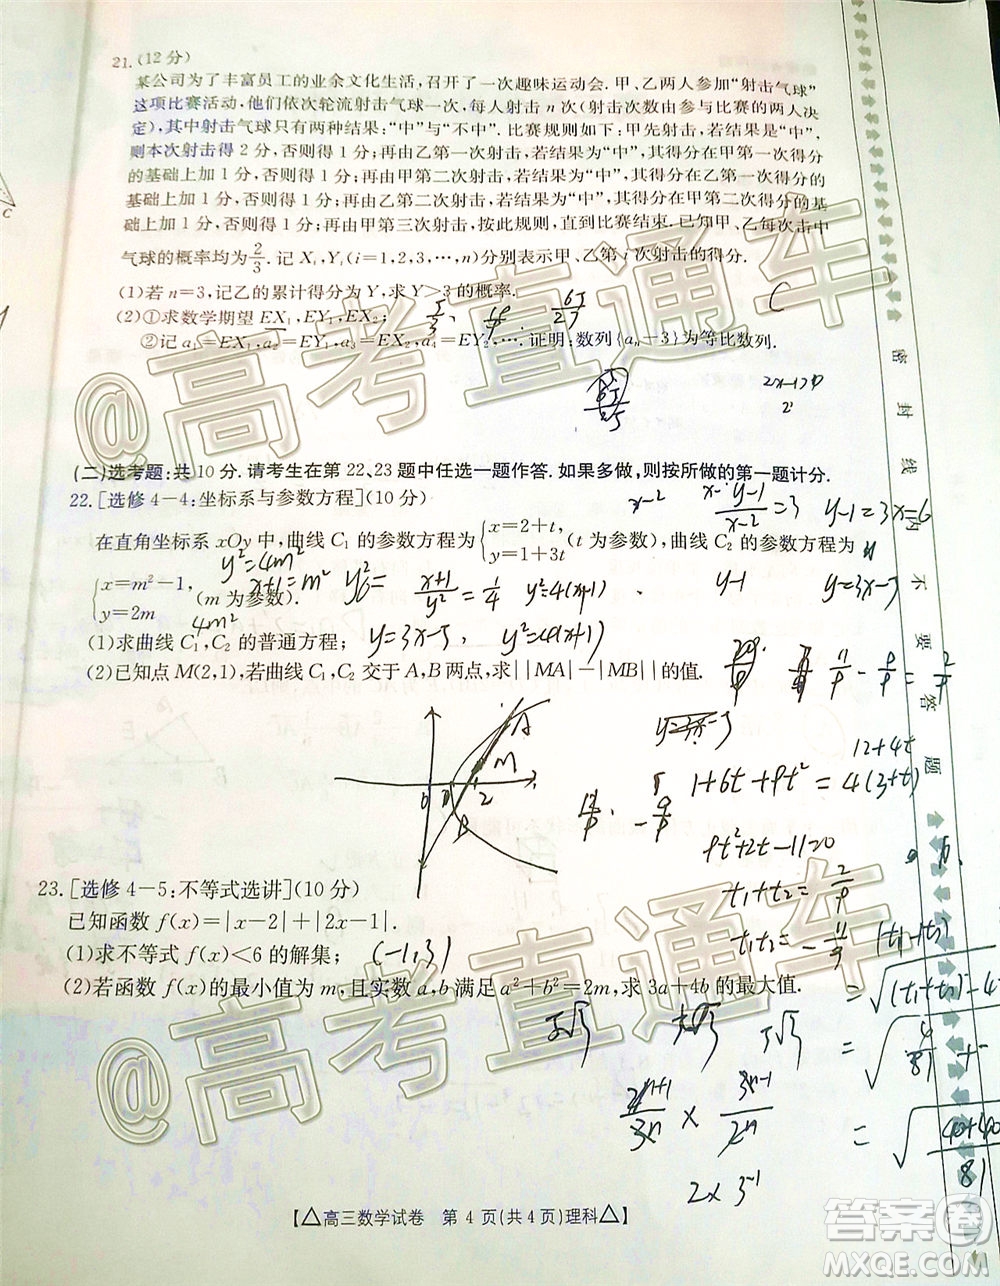 21.(12分)
某公司为了丰富员工的业余文化生活,召开了一次趣味运动会.甲、乙两人参加“射击气球”
这项比赛活动.他们依次轮流射击气球一次,每人射击n次(射击次数由参与比赛的两人决
定),其中射击气球只有两种结果:“中”与“不中”.比赛规则如下:甲先射击,若结果为“中”,
则本次射击得2分,否则得1分;再由乙第一次射击,若结果为“中”,其得分在甲第一次得分
的基础上加1分,否则得1分;再由甲第二次射击,若结果为“中”,其得分在乙第一次得分的
基础上加1分,否则得1分;再由乙第二次射击,若结果为“中”,其得分在甲第二次得分的基
础上加1分,否则得1分;再由甲第三次射击,按此规则,直到比赛结束.已知甲、乙每次击中
气球的概率均为2/3.记Xᵢ,Yᵢ(i=1,2,3,…,n)分别表示甲、乙第i次射击的得分.
(1)若n=3,记乙的累计得分为Y,求Y>3的概率.
(2)①求数学期望EX₁,EY₁,EX₂;
5/3, 19/9 65/27
②记a₁=EX₁,a₂=EY₁,a₃=EX₂,a₄=EY₂,….证明:数列{aₙ-3}为等比数列.
(二)选考题:共10分.请考生在第22、23题中任选一题作答.如果多做,则按所做的第一题计分.
22.[选修4-4:坐标系与参数方程](10分)
x-2 y-1/x-2=3 y-1=3x-6
在直角坐标系xOy中,曲线C₁的参数方程为{x=2+t, y=1+3t(t为参数),曲线C₂的参数方程为
y²=4m²
{x=m²-1, y=2m (m为参数).
x+1=m² x+1/y²=1/4 y²=4(x+1) y-1 y=3x-5
4m²
(1)求曲线C₁,C₂的普通方程; y=3x-5, y²=4(x+1)
(2)已知点M(2,1),若曲线C₁,C₂交于A,B两点,求||MA|-|MB||的值.
11/9-9/9=2/9
A
M
0 2
B
12+4t
1+6t+9t²=4(3+t)
9t²+2t-11=0
t₁+t₂=2/9
t₁t₂=-11/9
23.[选修4-5:不等式选讲](10分)
已知函数f(x)=|x-2|+|2x-1|.
(1)求不等式f(x)<6的解集; (-1,3)
(2)若函数f(x)的最小值为m,且实数a,b满足a²+b²=2m,求3a+4b的最大值.
5√3 5√3
2×3⁻¹
【△高三数学试卷 第4页(共4页)理科△】
密封线内不要答题
@高考直通车
@高考直通车
答案圈
MXQE.COM